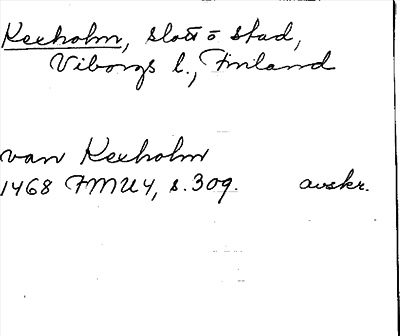 Kexholm, slott o stad,
Viborgs l., Finland
van Kexholm
1468 FMU 4, s. 309. avskr.